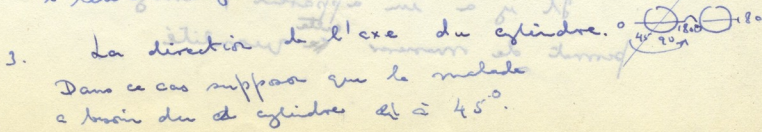 3. La direction de l'axe du cylindre. 0 180 180
45 90
Dans ce cas supposons que le malade
a besoin du cylindre à 45°.